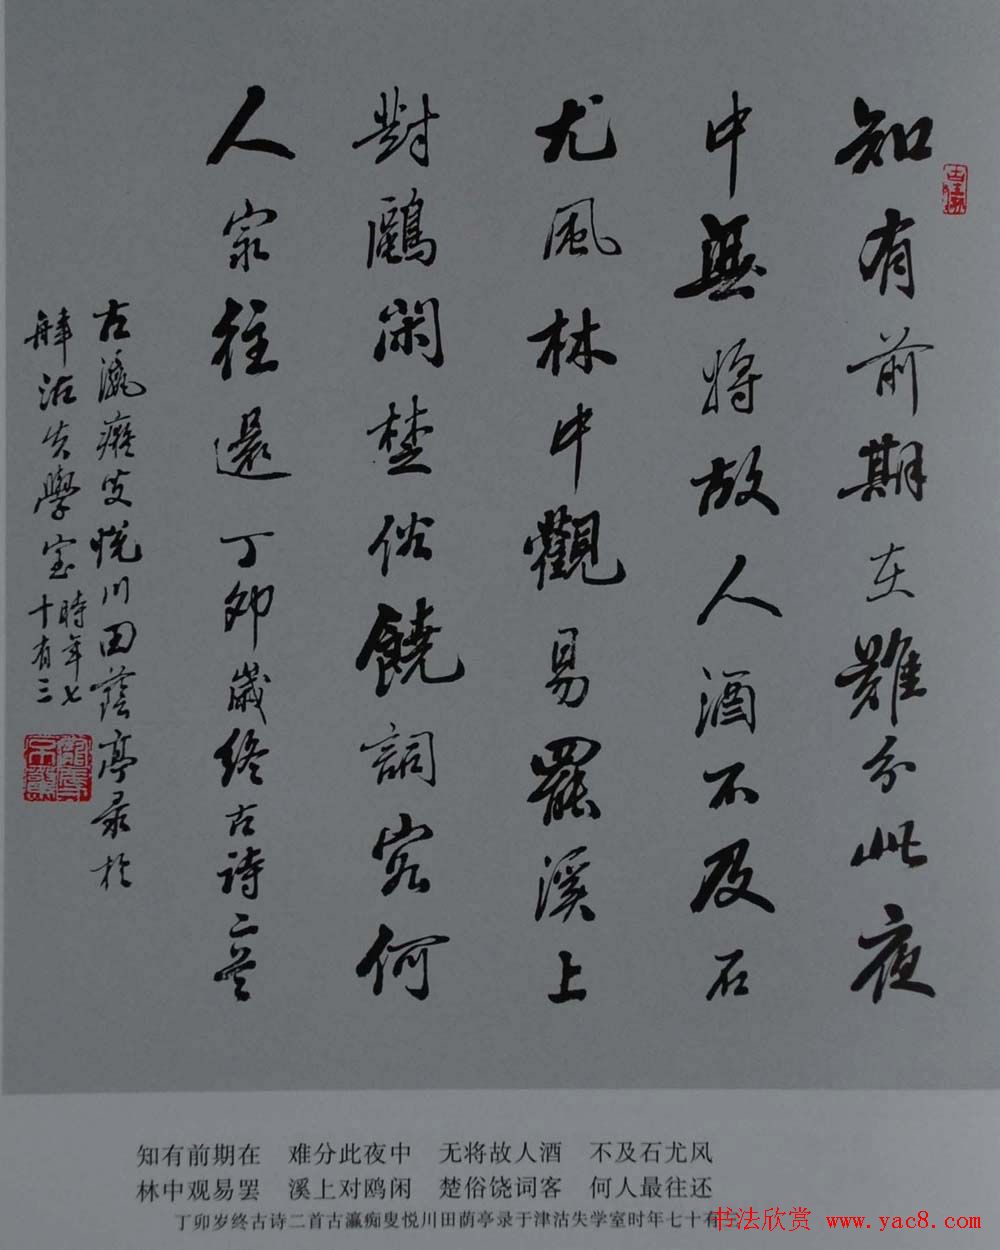 知有前期在難分此夜
中無將故人酒不及石
尤風林中觀易罷溪上
對鷗閑楚俗饒詞客何
人冣往還丁卯歲終古詩二首
古瀛癡叟悅川田蔭亭录於
津沽失學室時年七
十有三
知有前期在 难分此夜中 无将故人酒 不及石尤风
林中观易罢 溪上对鸥闲 楚俗饶词客 何人最往还
丁卯岁终古诗二首古瀛痴叟悦川田荫亭录于津沽失学室时年七十有
书法欣赏 www.yac8.com